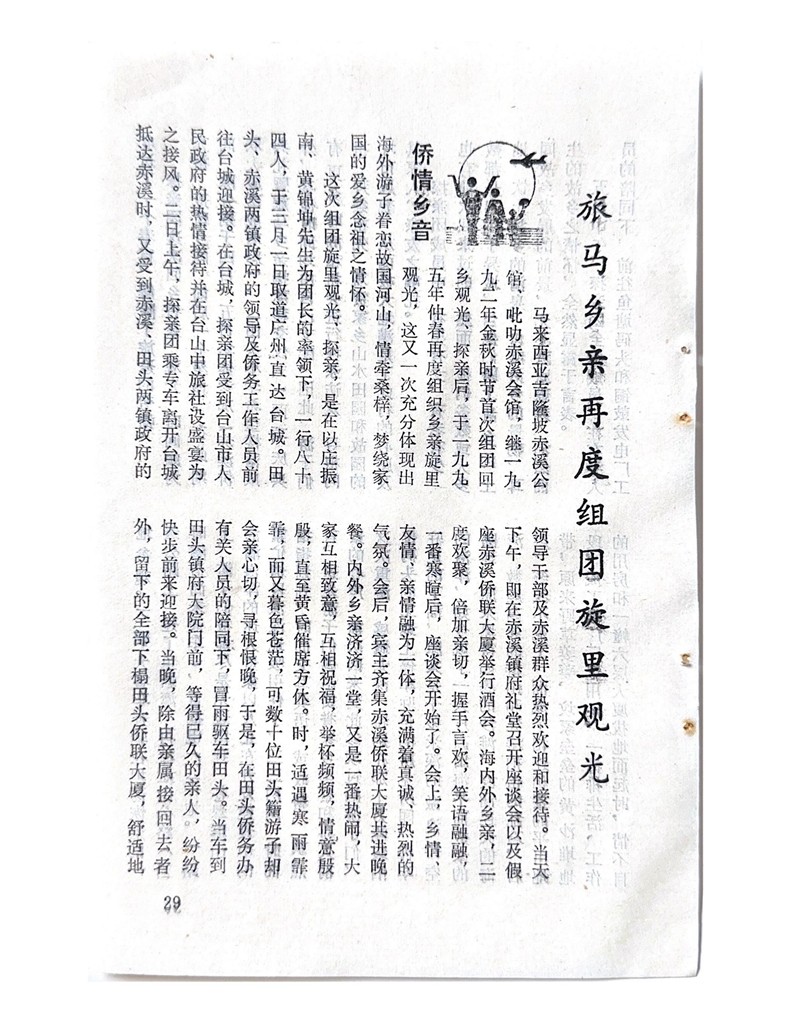 旅马乡亲再度组团旋里观光
侨情乡音
马来西亚吉隆坡赤溪公
馆、吡叻赤溪会馆，继一九
九二年金秋时节首次组团回
乡观光、探亲后，于一九九
五年仲春再度组织乡亲旋里
观光，这又一次充分体现出
海外游子眷恋故国河山，情牵桑梓，梦绕家
国的爱乡念祖之情怀。
这次组团旋里观光、探亲，是在以庄振
南、黄锦坤先生为团长的率领下，一行八十
四人，于三月一日取道广州直达台城。田
头、赤溪两镇政府的领导及侨务工作人员前
往台城迎接。在台城，探亲团受到台山市人
民政府的热情接待并在台山中旅社设盛宴为
之接风。二日上午，探亲团乘专车离开台城
抵达赤溪时，又受到赤溪、田头两镇政府的
领导干部及赤溪群众热烈欢迎和接待。当天
下午，即在赤溪镇府礼堂召开座谈会以及假
座赤溪侨联大厦举行酒会。海内外乡亲，二
度欢聚，倍加亲切，握手言欢，笑语融融，
一番寒暄后，座谈会开始了。会上，乡情、
友情、亲情融为一体，充满着真诚、热烈的
气氛。会后，宾主齐集赤溪侨联大厦共进晚
餐。内外乡亲济济一堂，又是一番热闹，大
家互相致意，互相祝福，举杯频频，情意殷
殷，直至黄昏催席方休。时，适遇寒雨霏
霏，而又暮色苍茫，可数十位田头籍游子却
会亲心切，寻根恨晚，于是，在田头侨务办
有关人员的陪同下，冒雨驱车田头。当车到
田头镇府大院门前，等得已久的亲人，纷纷
快步前来迎接。当晚，除由亲属接回去者
外，留下的全部下榻田头侨联大厦，舒适地
29